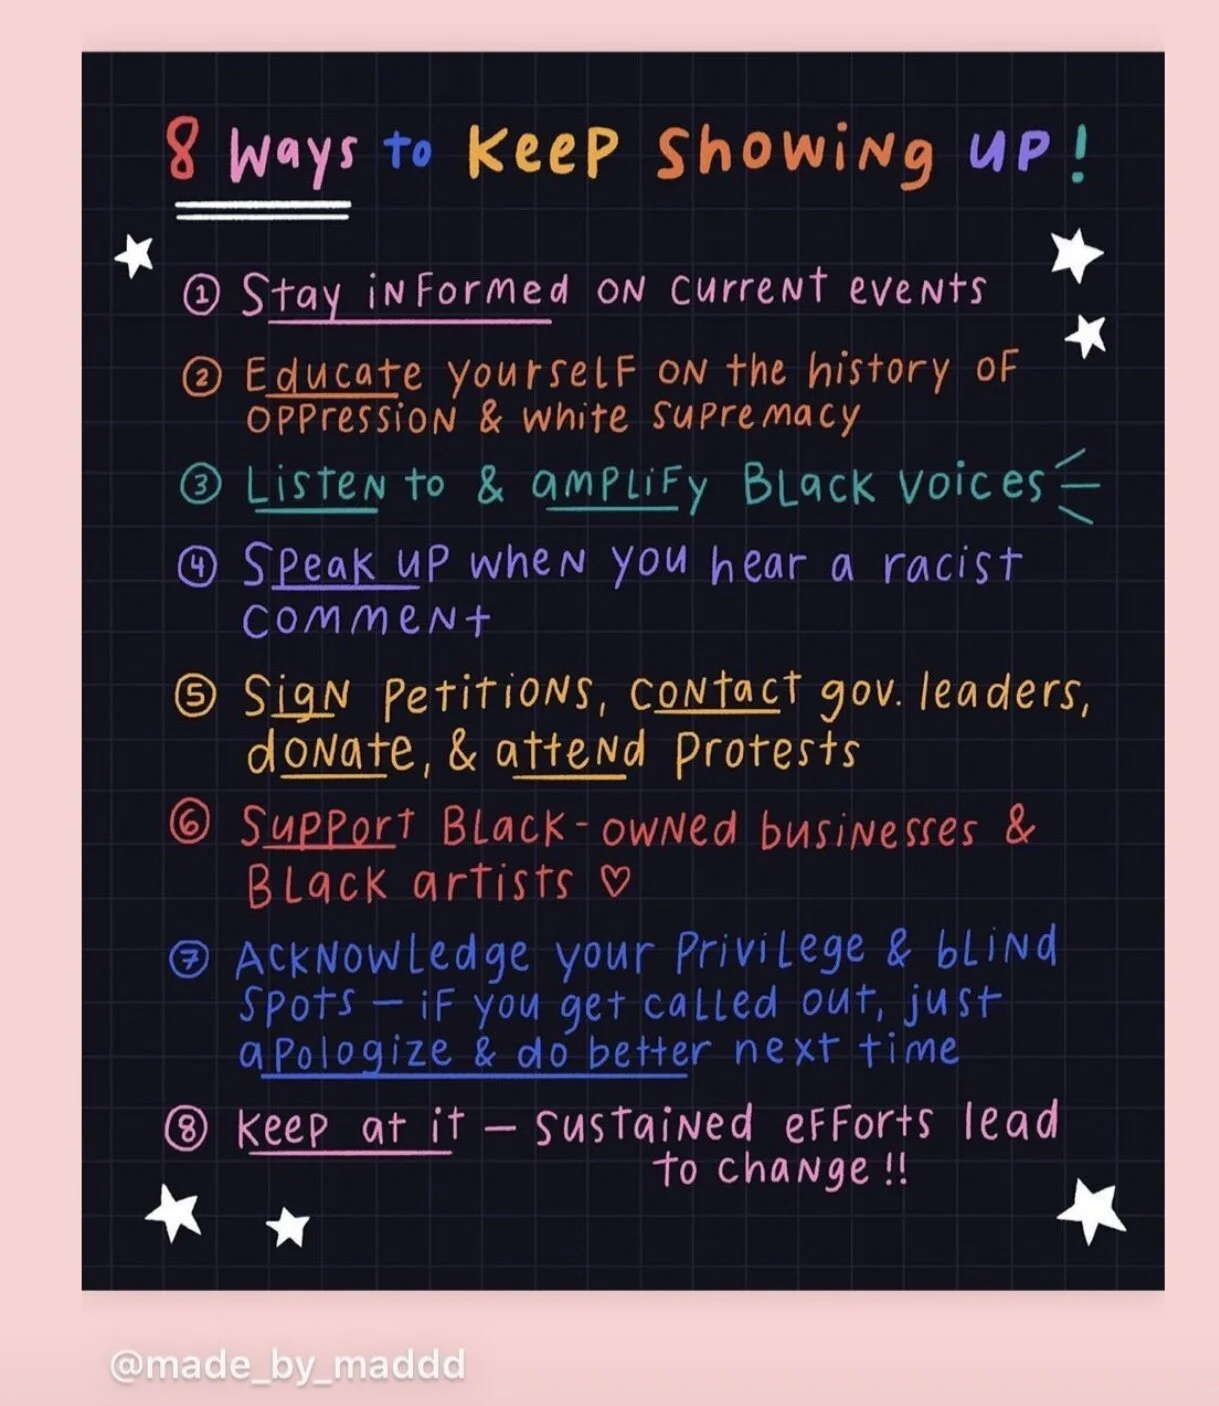 8 Ways to Keep Showing Up!
① Stay informed on current events
② Educate yourself on the history of
oppression & white supremacy
③ Listen to & amplify Black voices
④ Speak up when you hear a racist
comment
⑤ Sign petitions, contact gov. leaders,
donate, & attend protests
⑥ Support Black-owned businesses &
Black artists ♡
⑦ Acknowledge your privilege & blind
spots – if you get called out, just
apologize & do better next time
⑧ Keep at it – sustained efforts lead
to change!!
@made_by_maddd